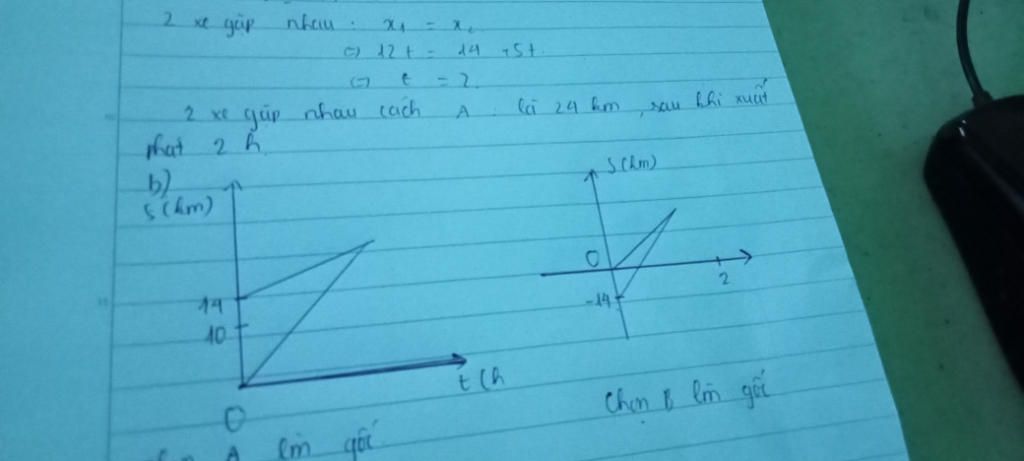 2 xe gặp nhau : x₁ = x₂
⇔ 12t = 14 +5t.
⇔ t = 2.
2 xe gặp nhau cách A : là 24 km, sau khi xuất
phát 2 h.
b)
S(km)
14
10
O
t(h
S(km)
O
2
-14
Chọn B làm gốc
A làm gốc